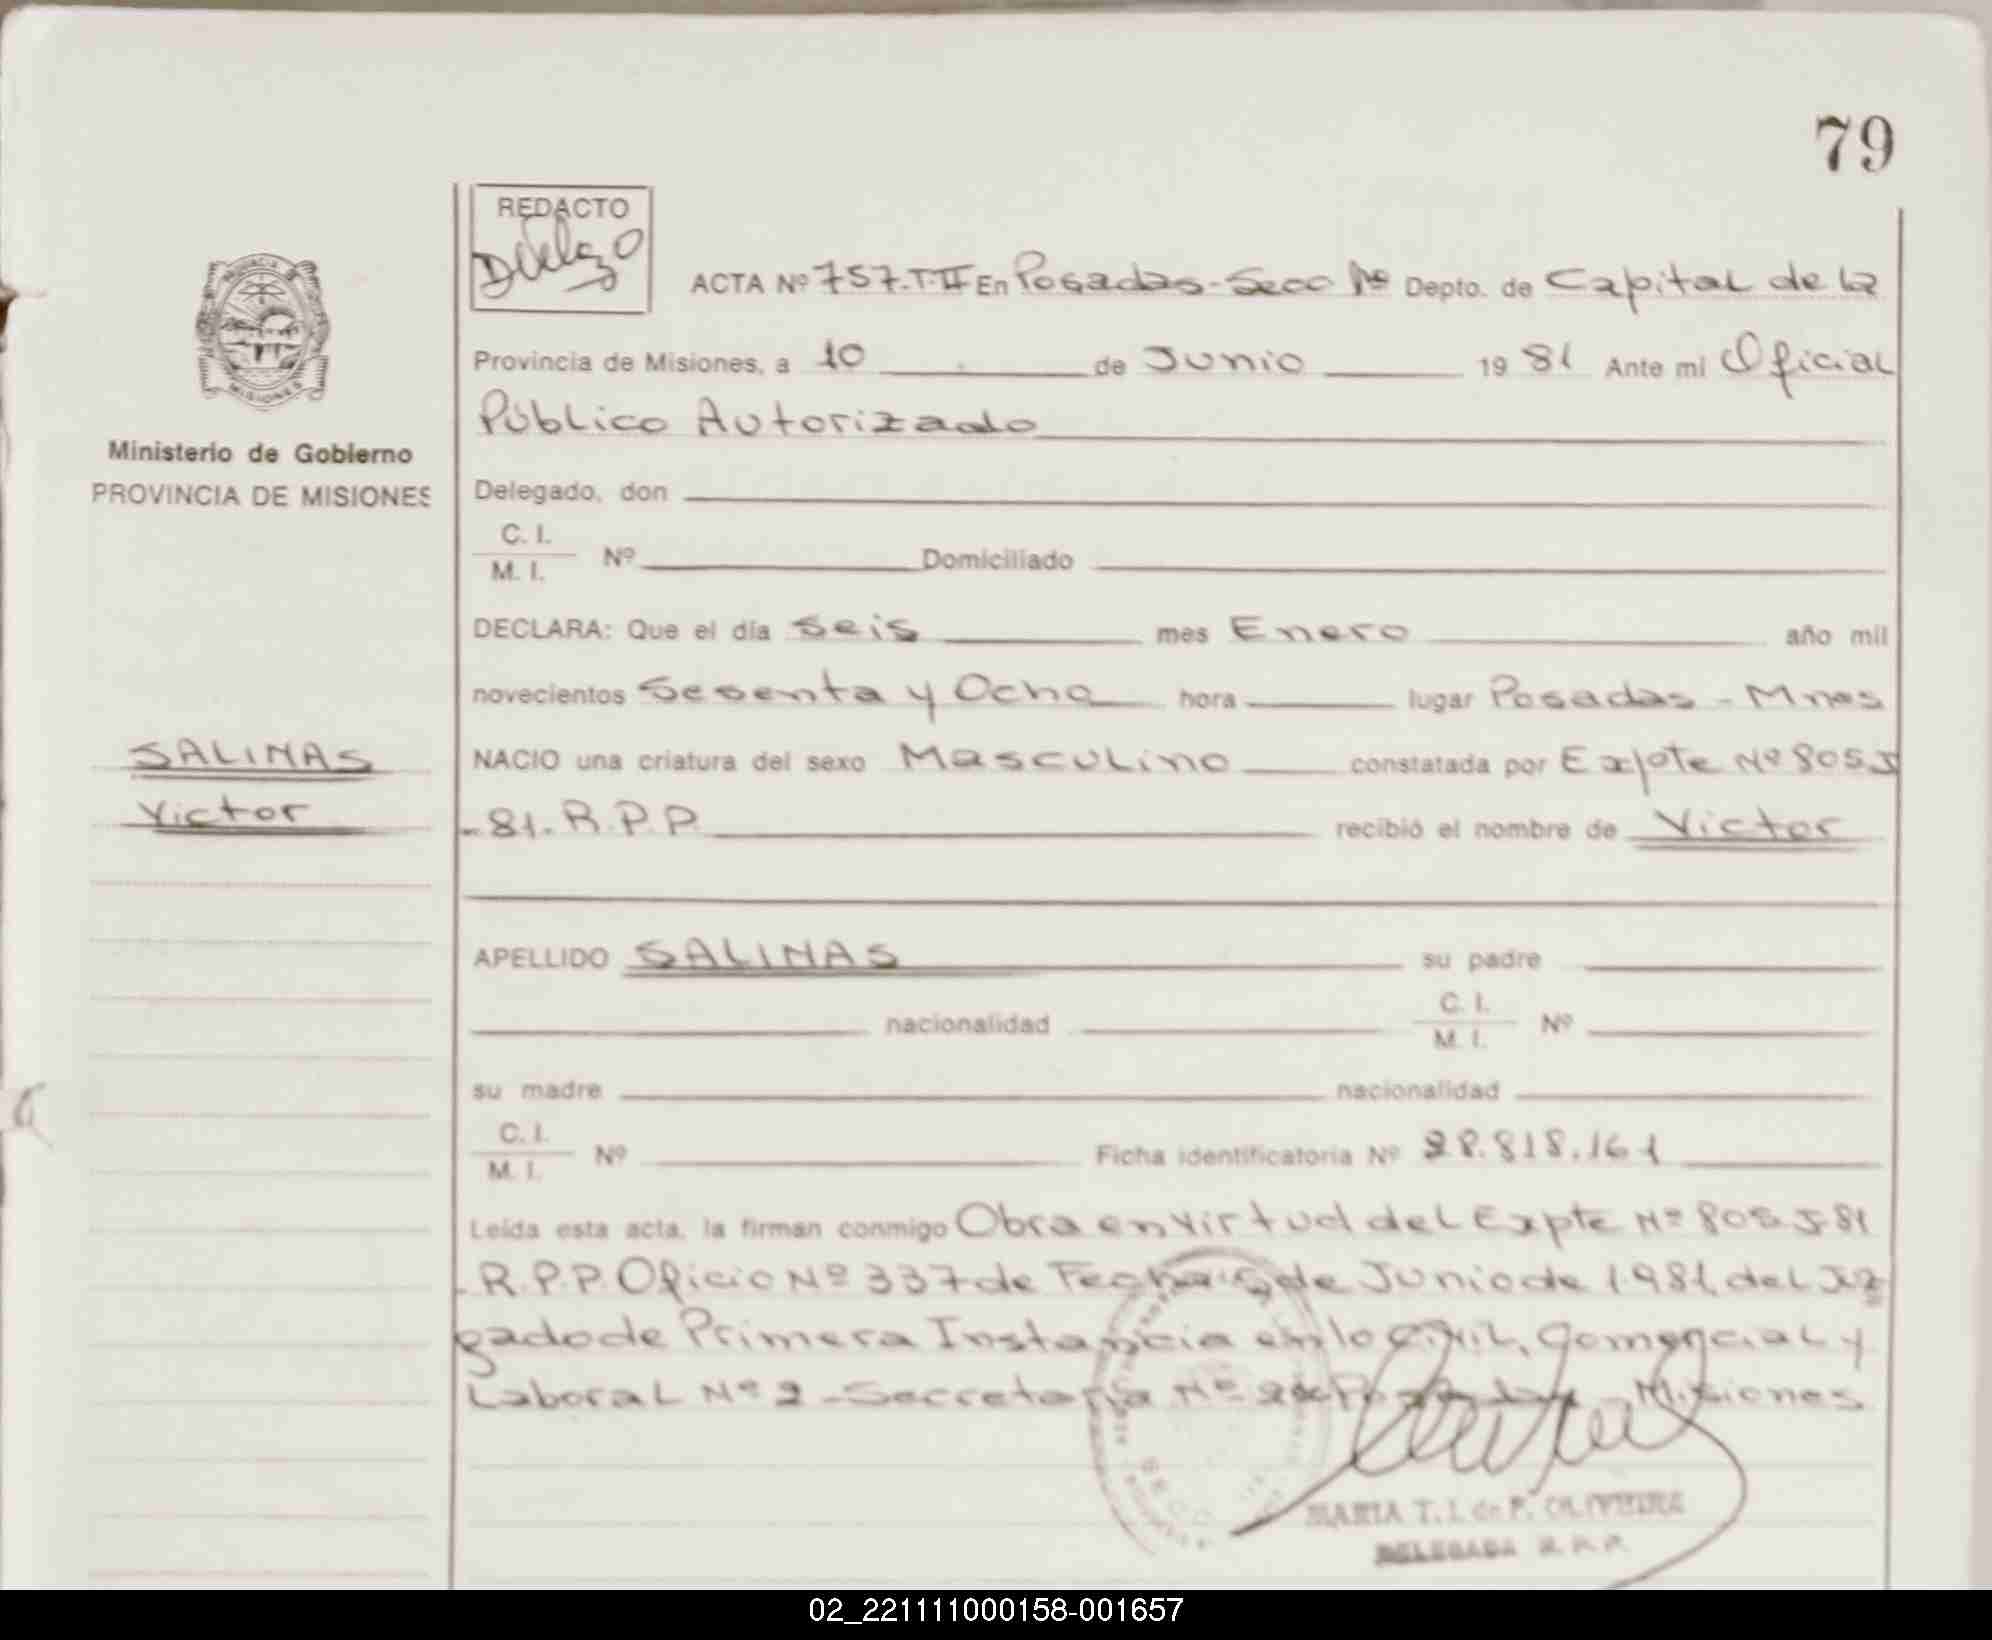 79
REDACTO
ACTA Nº 757. T. II En Posadas - Secc 1ª Depto. de Capital de la
Provincia de Misiones, a 10 de Junio 1981 Ante mi Oficial
Público Autorizado
Ministerio de Gobierno
PROVINCIA DE MISIONES
Delegado, don
C. I.
M. I. Nº Domiciliado
DECLARA: Que el día Seis mes Enero año mil
novecientos Sesenta y Ocho hora lugar Posadas - Mnes
SALINAS
Victor
NACIO una criatura del sexo Masculino constatada por Expte Nº 805.J
-81- R.P.P. recibió el nombre de Victor
APELLIDO SALINAS su padre
nacionalidad C. I.
M. I. Nº
su madre nacionalidad
C. I.
M. I. Nº Ficha identificatoria Nº 28.818.161
Leída esta acta, la firman conmigo Obra en virtud del Expte Nº 805.J-81
- R.P.P. Oficio Nº 337 de Fecha de Junio de 1981, del Juz
gado de Primera Instancia en lo Civil, Comercial y
Laboral Nº 2 - Secretaria Nº Posadas Misiones
MARIA T. I. de P. OLIVEIRA
DELEGADA R. P. P.
02_221111000158-001657